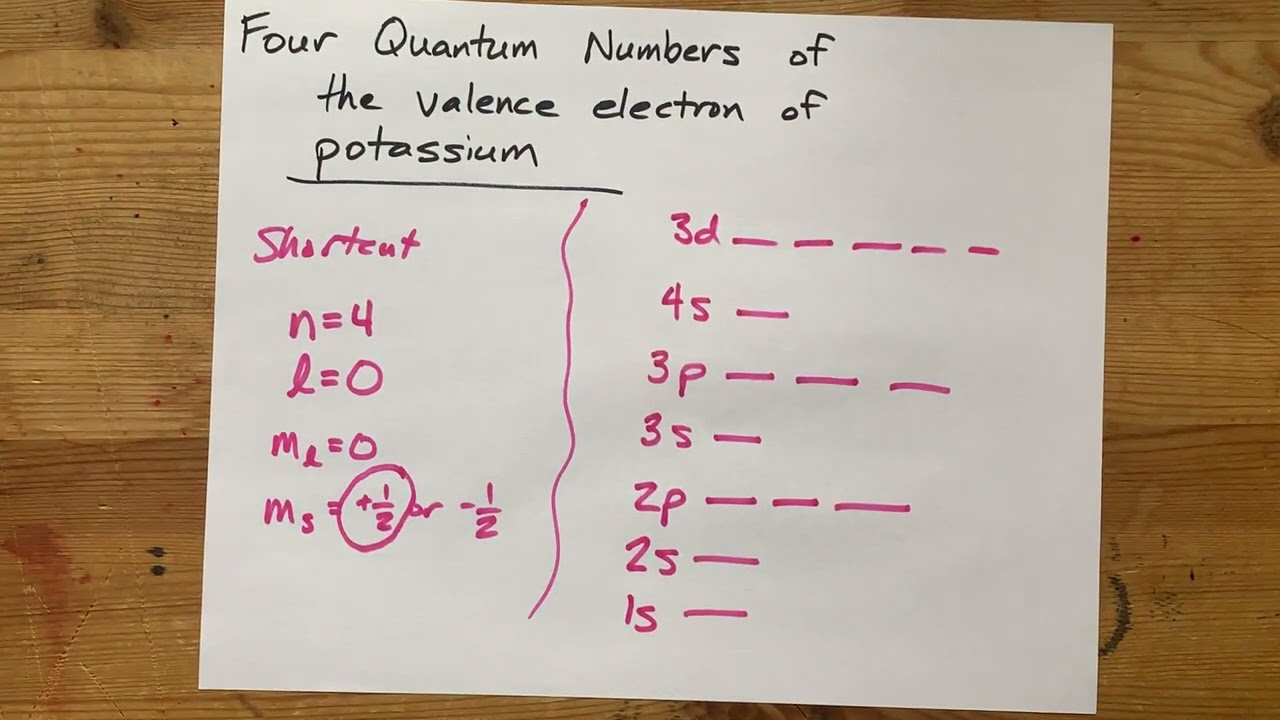 Four Quantum Numbers of
the valence electron of
potassium
Shortcut
n=4
l=0
mₗ=0
mₛ=+½ or -½
3d _ _ _ _ _
4s _
3p _ _ _
3s _
2p _ _ _
2s _
1s _